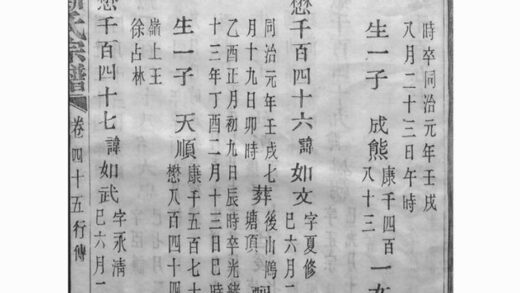 時卒同治元年壬戌
八月二十三日午時
生一子 成熊 康千四百
八十三 一
懋千百四十六 諱如文 字夏修
巳六月二
同治元年壬戌七
月十九日卯時 葬 後山
塘頂
乙酉正月初九日辰時卒光緒
十三年丁酉二月十三日巳時
生一子 天順 康千五百七十
懋八百四十
嶺上王
徐占林
懋千百四十七 諱如武 字永清
巳六月二
氏宗譜 卷四十五 行傳